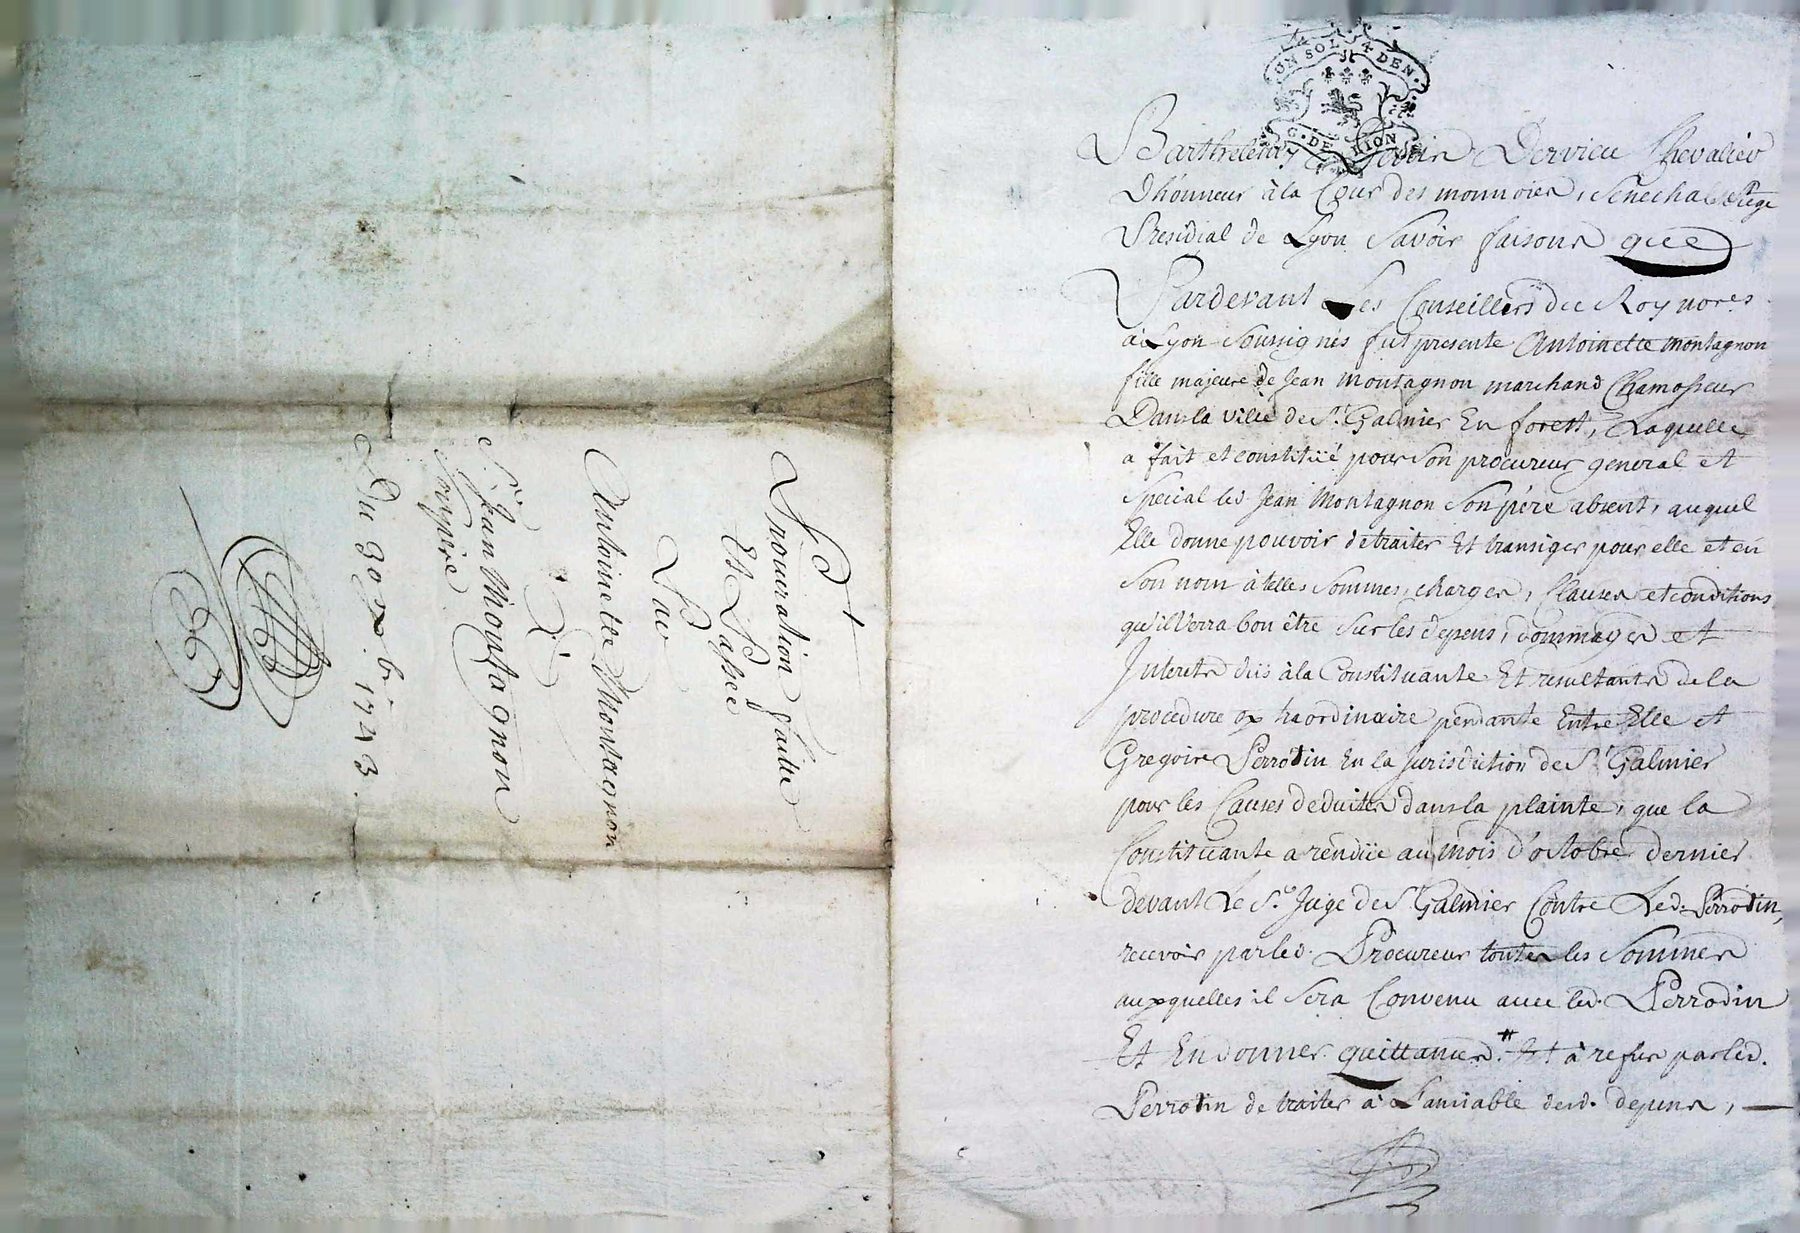 Procuration faitte
Et Passée
Par
Antoinette Montagnon
A
Sr. Jean Montagnon
Son père
Du 30 9bre 1743.
UN SOL 4 DEN.
G. DE LION
Barthelemy Dervieu Chevalier
D'honneur à la Cour des monnoies, Senechal & Siege
Presidial de Lyon Savoir faisons que
Pardevant Les Conseillers du Roy nores
à Lyon Soussignés fut presente Antoinette Montagnon
fille majeure de Jean Montagnon marchand Chamosseur
Dans la ville de St. Galmier En forest, Laquelle
a fait et constitüé pour Son procureur general et
Special led. Jean Montagnon Son père absent, auquel
Elle donne pouvoir de traiter Et transiger pour elle et en
Son nom à telles Sommes, charges, Clauses et conditions
qu'il Verra bon être Sur les depens, dommages et
Interets dûs à la Constituante Et resultants de la
procedure extraordinaire pendante Entre Elle et
Gregoire Perrodin En la Jurisdiction de St. Galmier
pour les Causes deduites dans la plainte, que la
Constituante a rendüe au mois d'octobre dernier
devant Le Sr. Juge de St. Galmier Contre Led. Perrodin,
recevoir par led. Procureur toutes les Sommes
auxquelles il Sera Convenu avec led. Perrodin
Et En donner quittances. # Et à refus par led.
Perrodin de traiter à L'amiable desd. depens,